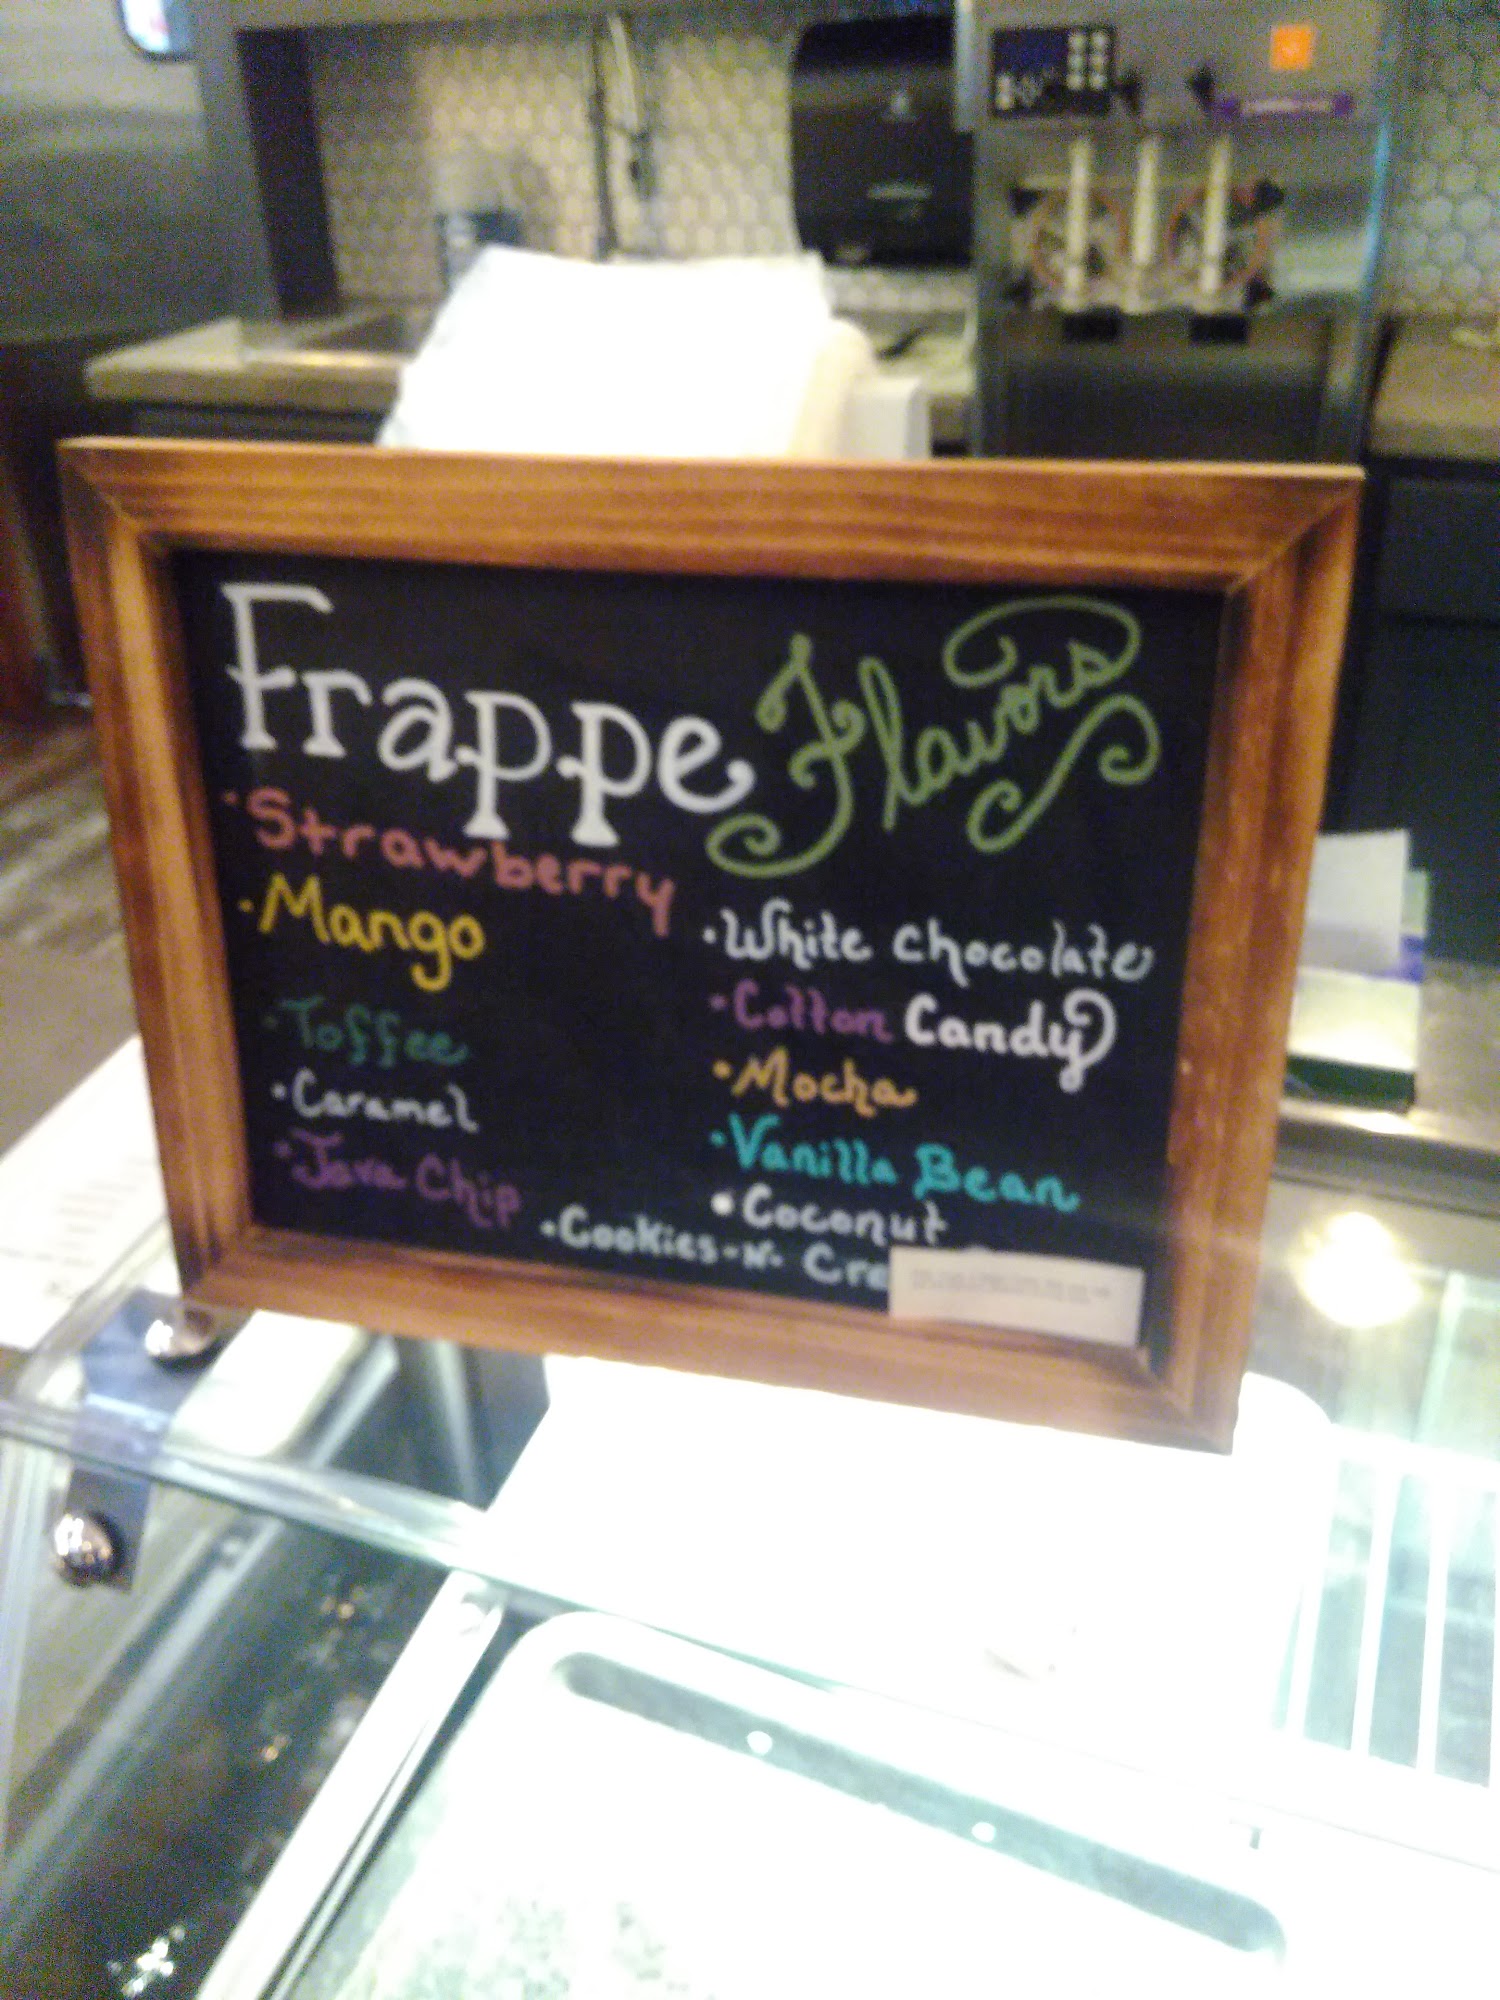 Frappe Flavors
·Strawberry
·Mango
·Toffee
·Caramel
·Java Chip
·White Chocolate
·Cotton Candy
·Mocha
·Vanilla Bean
·Coconut
·Cookies-N- Cre